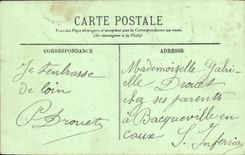 CARTE POSTALE
Tous les Pays étrangers n'acceptent pas la Correspondance au recto.
(Se renseigner à la Poste)
CORRESPONDANCE
ADRESSE
Je t'embrasse
de loin
P Drouet
Mademoiselle Gabri-
elle Drouet
chez ses parents
à Bacqueville en
caux S. Inferrie